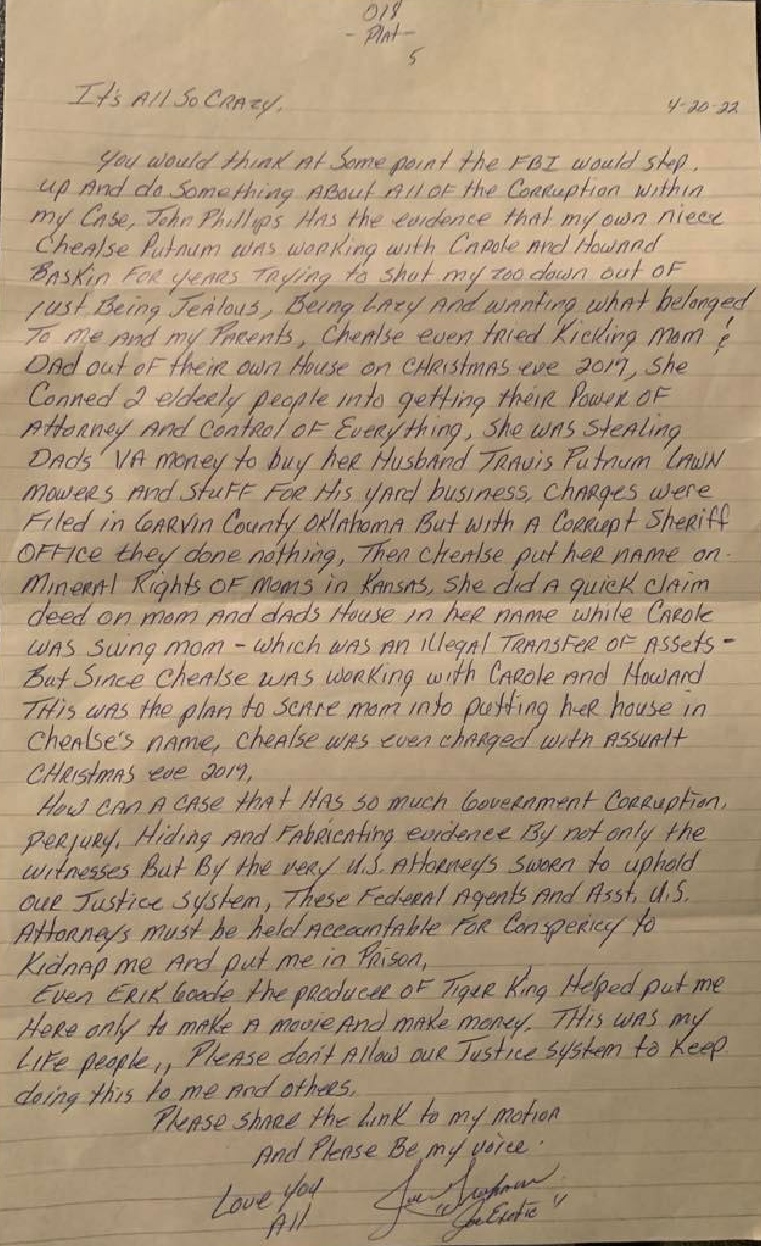 018
- Plat -
5
It's All So Crazy,
4-20-22
You would think At Some point the FBI would step
up And do Something About All of the Corruption within
my Case, John Phillips Has the evidence that my own niece
Chealse Putnum was working with Carole And Howard
Baskin For years Trying to shut my zoo down out of
just Being Jealous, Being Lazy And wanting what belonged
To me And my Parents, Chealse even tried Kicking mom &
Dad out of their own House on CHRistmas eve 2019, She
Conned 2 elderly people into getting their Power of
Attorney And Control of Everything, She was Stealing
Dads VA money to buy her Husband Travis Putnum Lawn
mowers And Stuff For His yard business, Charges were
Filed in Garvin County Oklahoma But with A Corrupt Sheriff
Office they done nothing, Then Chealse put her name on
Mineral Rights of Moms in Kansas, She did A quick claim
deed on mom And dads House in her name while Carole
was suing mom - which was an illegal Transfer of Assets -
But Since Chealse was working with Carole And Howard
This was the plan to scare mom into putting her house in
Chealse's name, Chealse was even charged with Assualt
CHRistmas eve 2019,
How can A case that Has so much Government Corruption,
perjury, Hiding And Fabricating evidence By not only the
witnesses But By the very U.S. Attorneys sworn to uphold
our Justice System, These Federal Agents And Asst. U.S.
Attorneys must be held Accountable For Conspericy to
Kidnap me And put me in Prison,
Even Erik Goode the producer of Tiger King Helped put me
Here only to make A movie And make money. This was my
Life people,, Please don't Allow our Justice system to keep
doing this to me And others.
Please share the Link to my motion
And Please Be my voice.
Love You
All
"Joe Exotic"